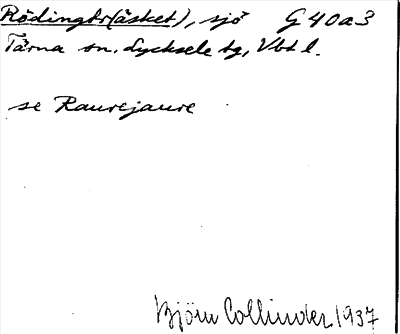 Rödingtr(äsket), sjö G40a3
Tärna sn. Lycksele tg, Vbt l.
se Raurejaure
Björn Collinder 1937